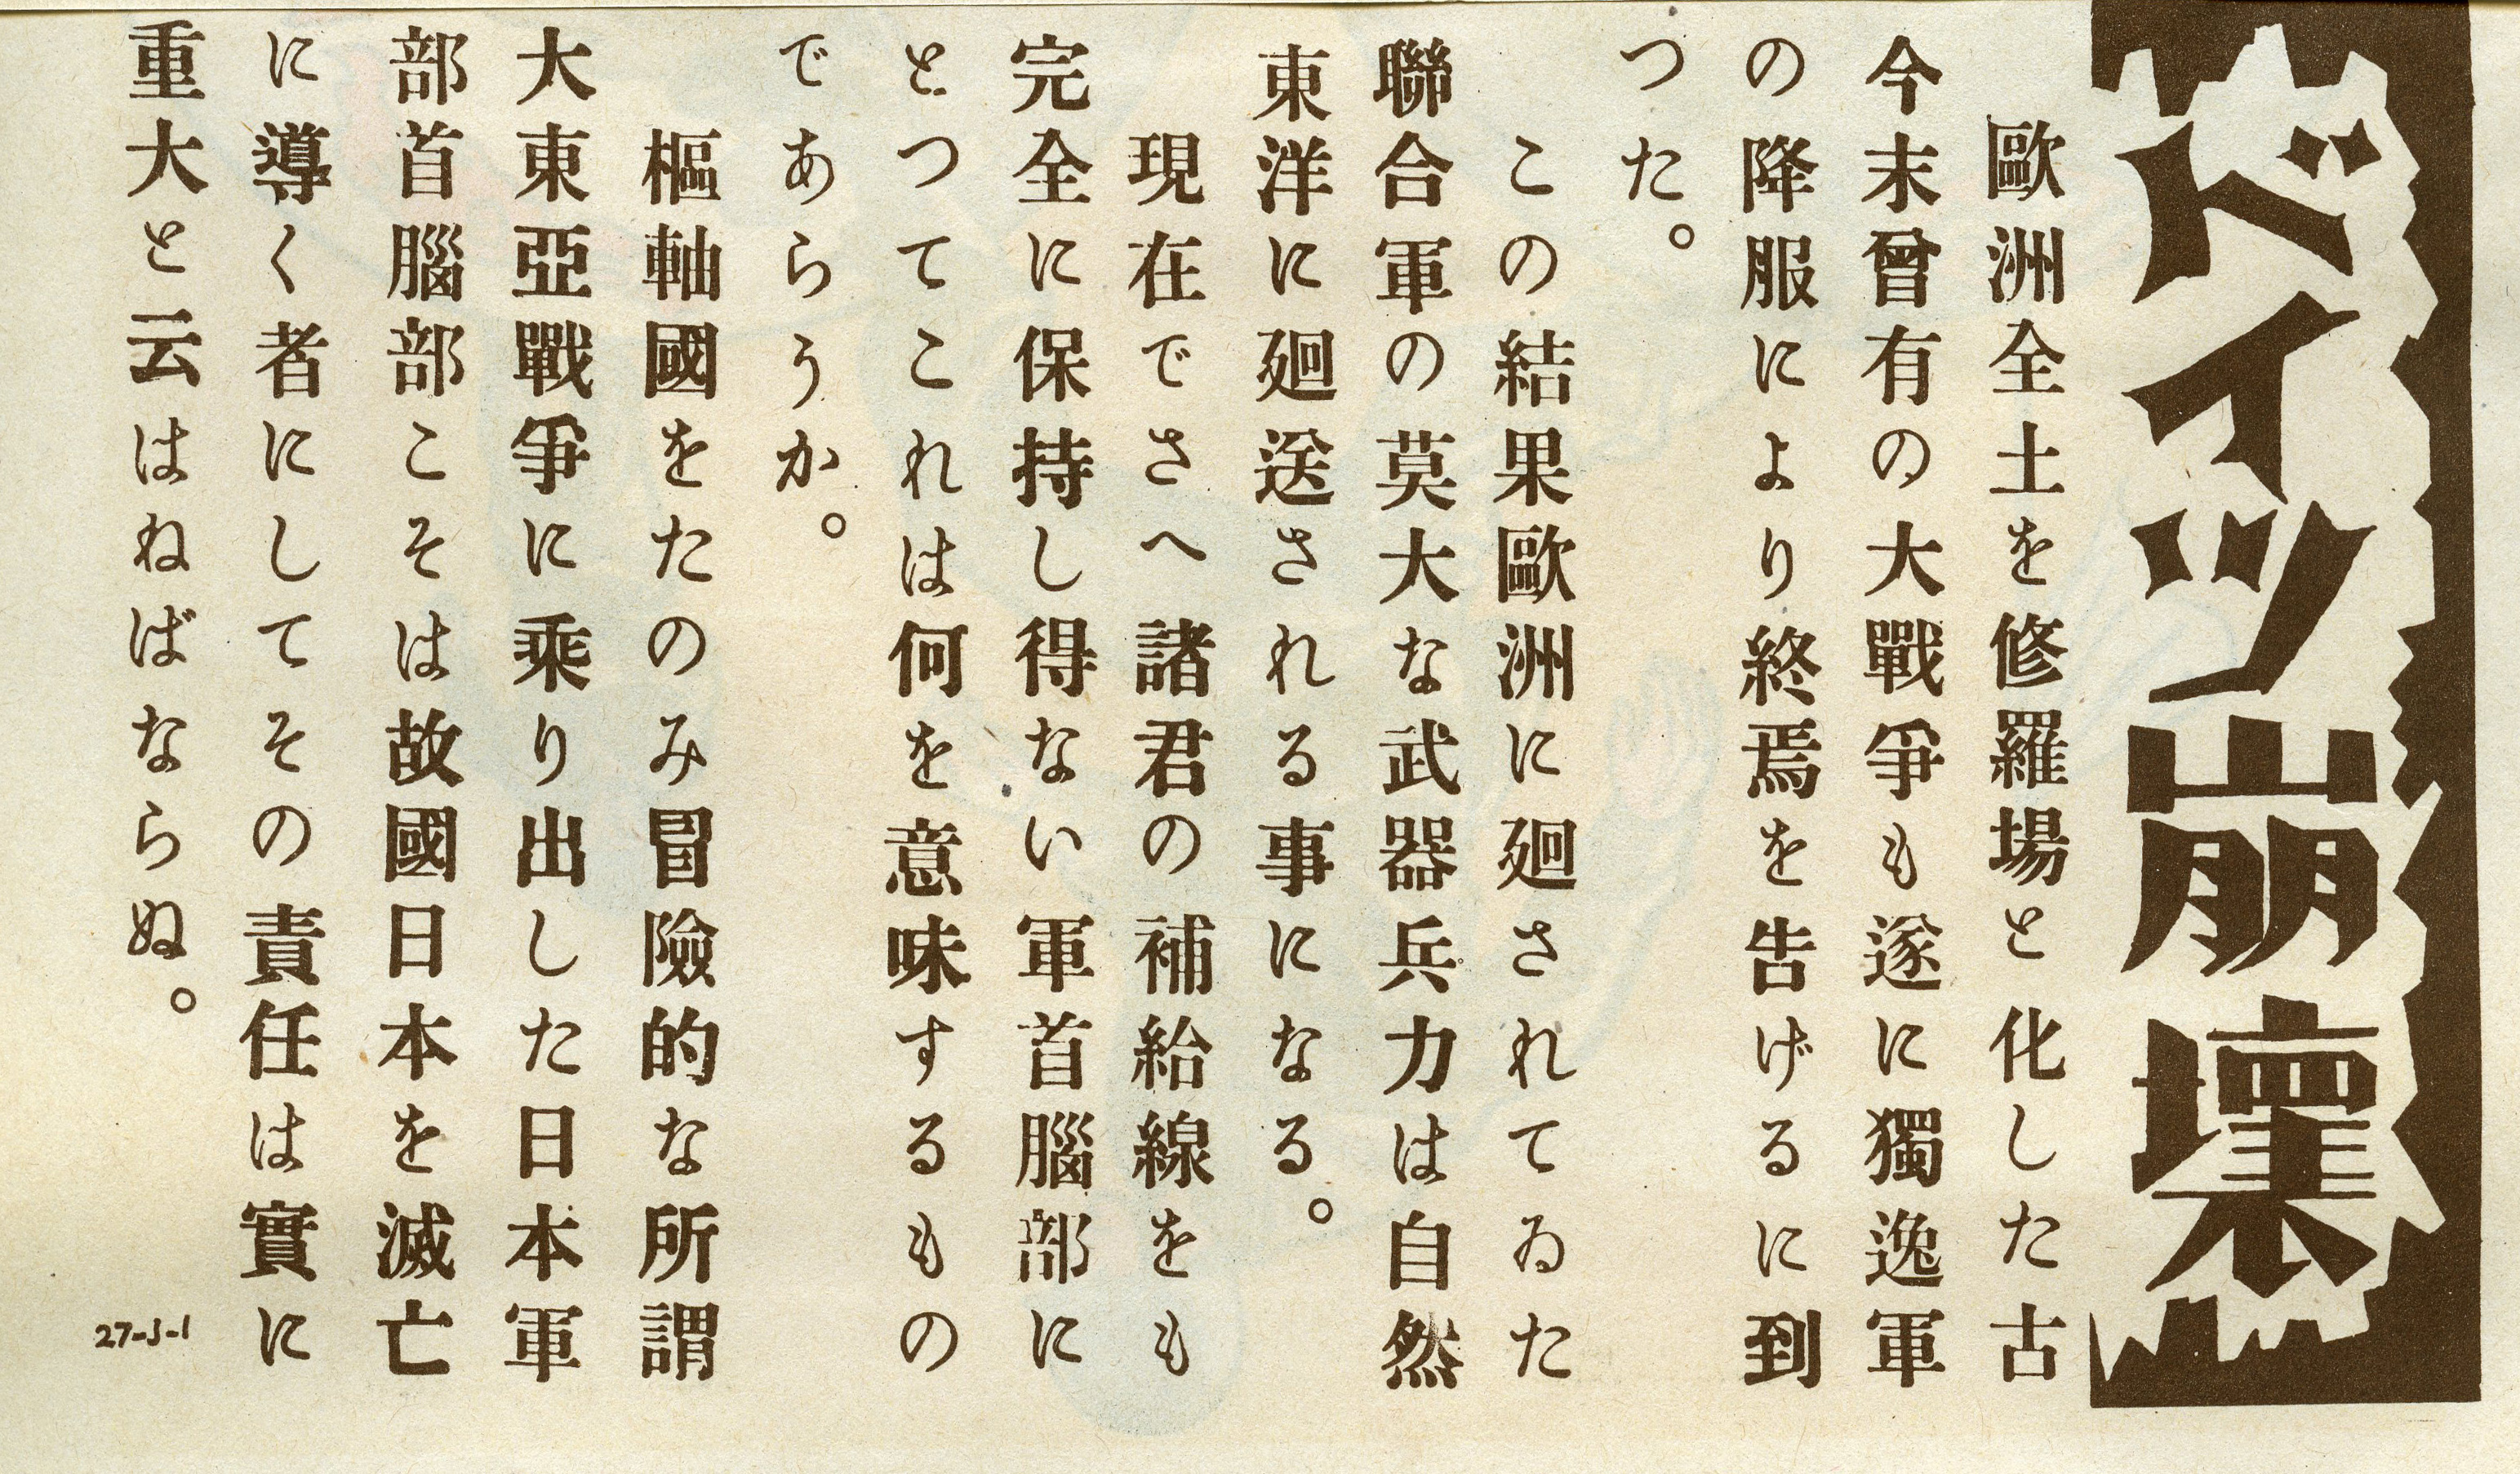 ドイツ崩壞
歐洲全土を修羅場と化した古
今末曾有の大戰爭も遂に獨逸軍
の降服により終焉を告げるに到
つた。
この結果歐洲に廻されてゐた
聯合軍の莫大な武器兵力は自然
東洋に廻送される事になる。
現在でさへ諸君の補給線をも
完全に保持し得ない軍首腦部に
とつてこれは何を意味するもの
であらうか。
樞軸國をたのみ冒險的な所謂
大東亞戰爭に乘り出した日本軍
部首腦部こそは故國日本を滅亡
に導く者にしてその責任は實に
重大と云はねばならぬ。
27-J-1